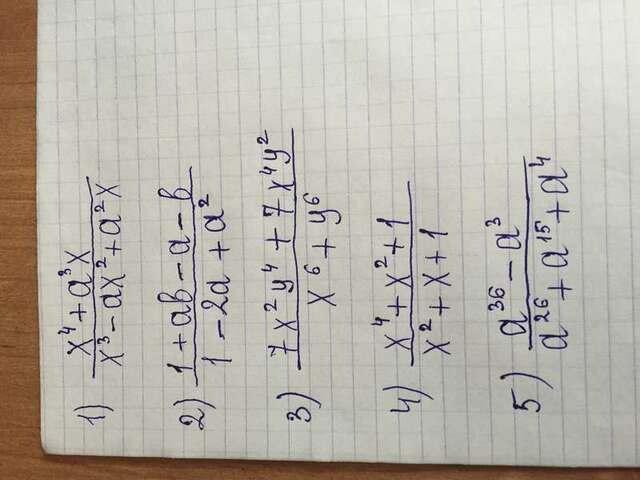 1) (x⁴ + a³x) / (x³ − ax² + a²x)
2) (1 + ab − a − b) / (1 − 2a + a²)
3) (7x²y⁴ + 7x⁴y²) / (x⁶ + y⁶)
4) (x⁴ + x² + 1) / (x² + x + 1)
5) (a³⁶ − a³) / (a²⁶ + a¹⁵ + a⁴)